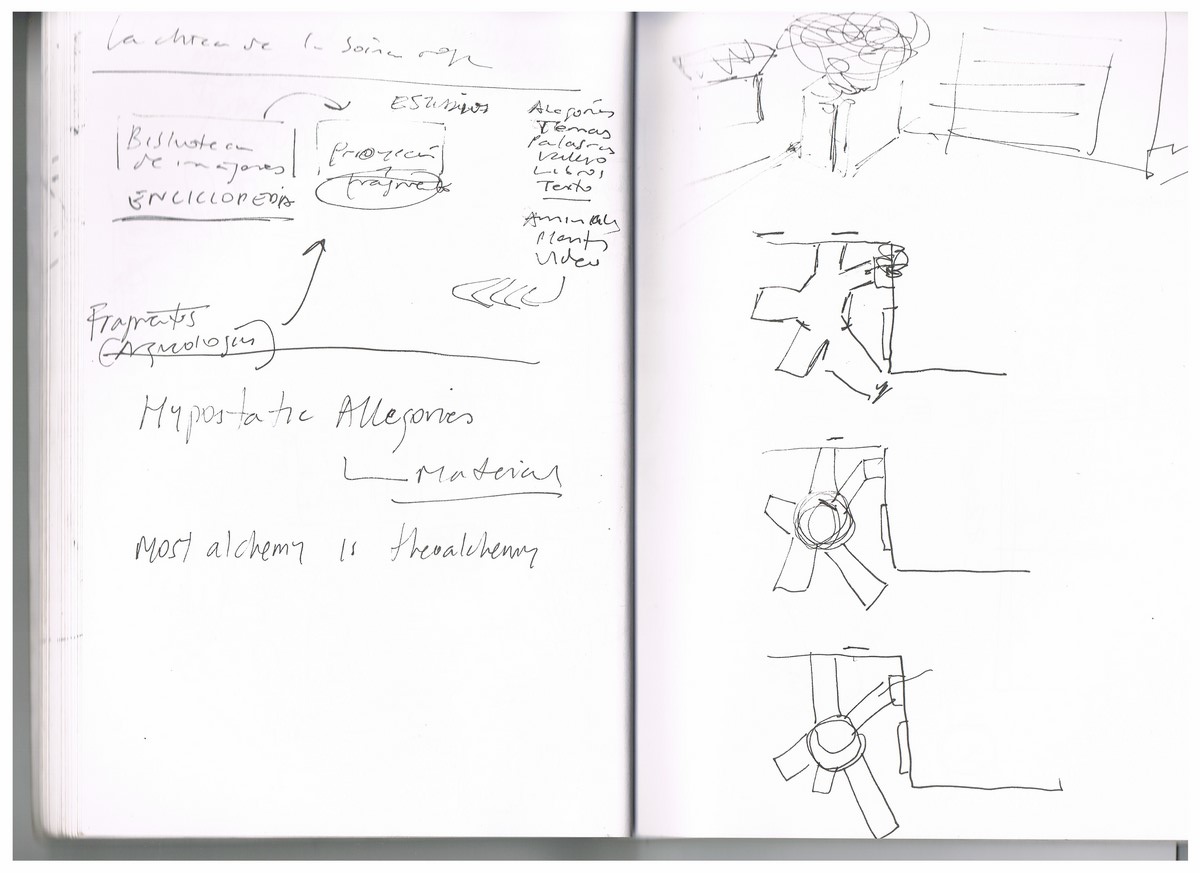 La chica de la
ESTUDIOS
Biblioteca
de imágenes
ENCICLOPEDIA
Proyección
fragmento
Alegorías
Temas
Palabras
Libros
Texto
Animales
Plantas
Video
Fragmentos
(Arqueología)
Hypostatic Allegories
Material
Most alchemy is theoalchemy